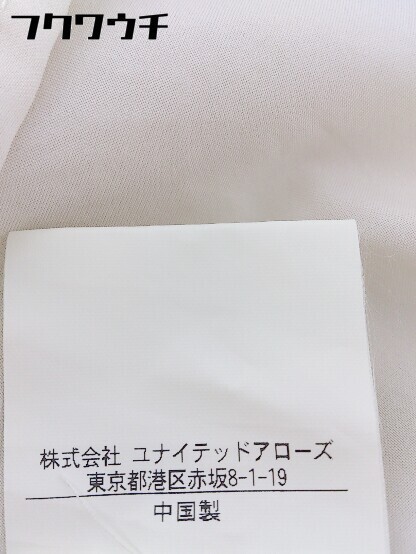 フクワウチ
株式会社 ユナイテッドアローズ
東京都港区赤坂8-1-19
中国製